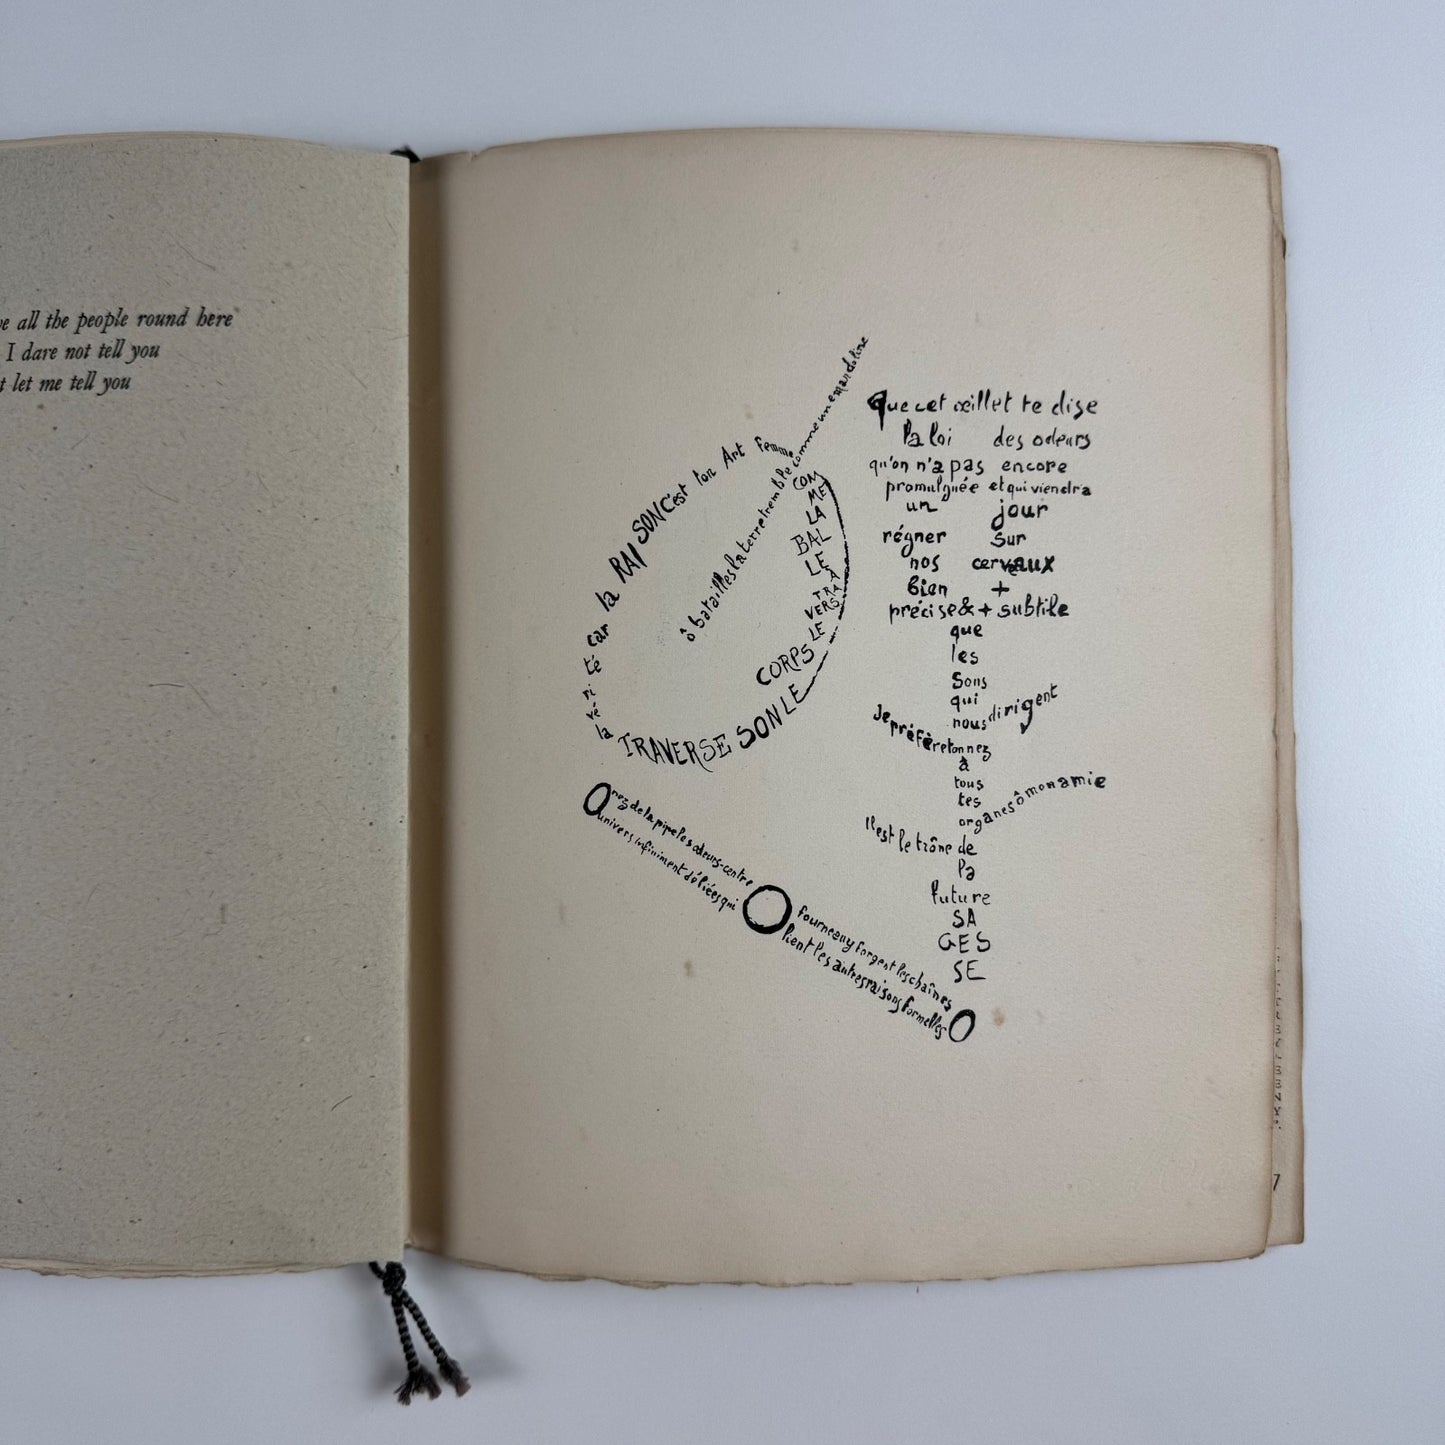 all the people round here
I dare not tell you
let me tell you
ô batailles la terre tremble comme une mandoline
COMME LA BALLE À TRAVERS LE CORPS
LE SON TRAVERSE
la vérité car la RAISON C'est ton Art femme
que cet œillet te dise
la loi des odeurs
qu'on n'a pas encore
promulguée et qui viendra
un jour
régner sur
nos cerveaux
bien +
précise & + subtile
que
les
sons
qui
nous dirigent
Je préfère ton nez
à
tous
tes
organes ô mon amie
Il est le trône de
la
future
SA
GES
SE
nez de la pipe les odeurs-centre
univers infiniment déliées qui
O
fourneau y forgent les chaînes
lient les autres raisons formelles
O
7